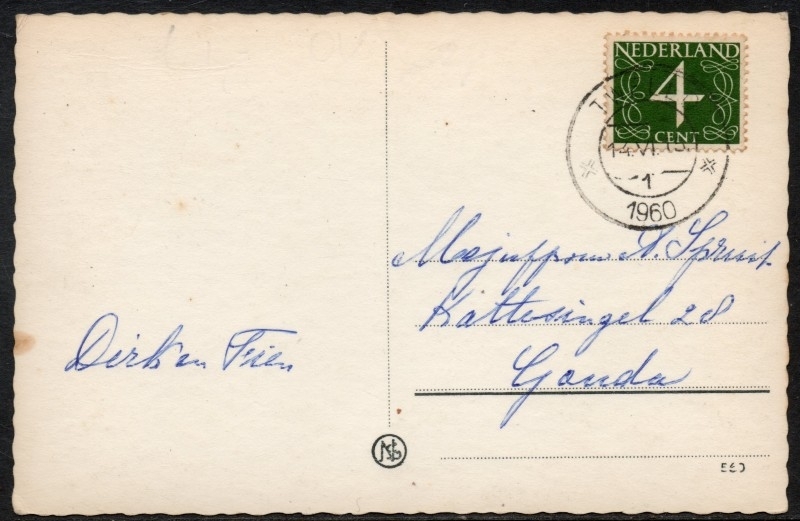 NEDERLAND
4
CENT
14.VI.
1
1960
Mejuffrouw A. Spruit.
Kattesingel 28
Gouda
Dirk en Trien
560